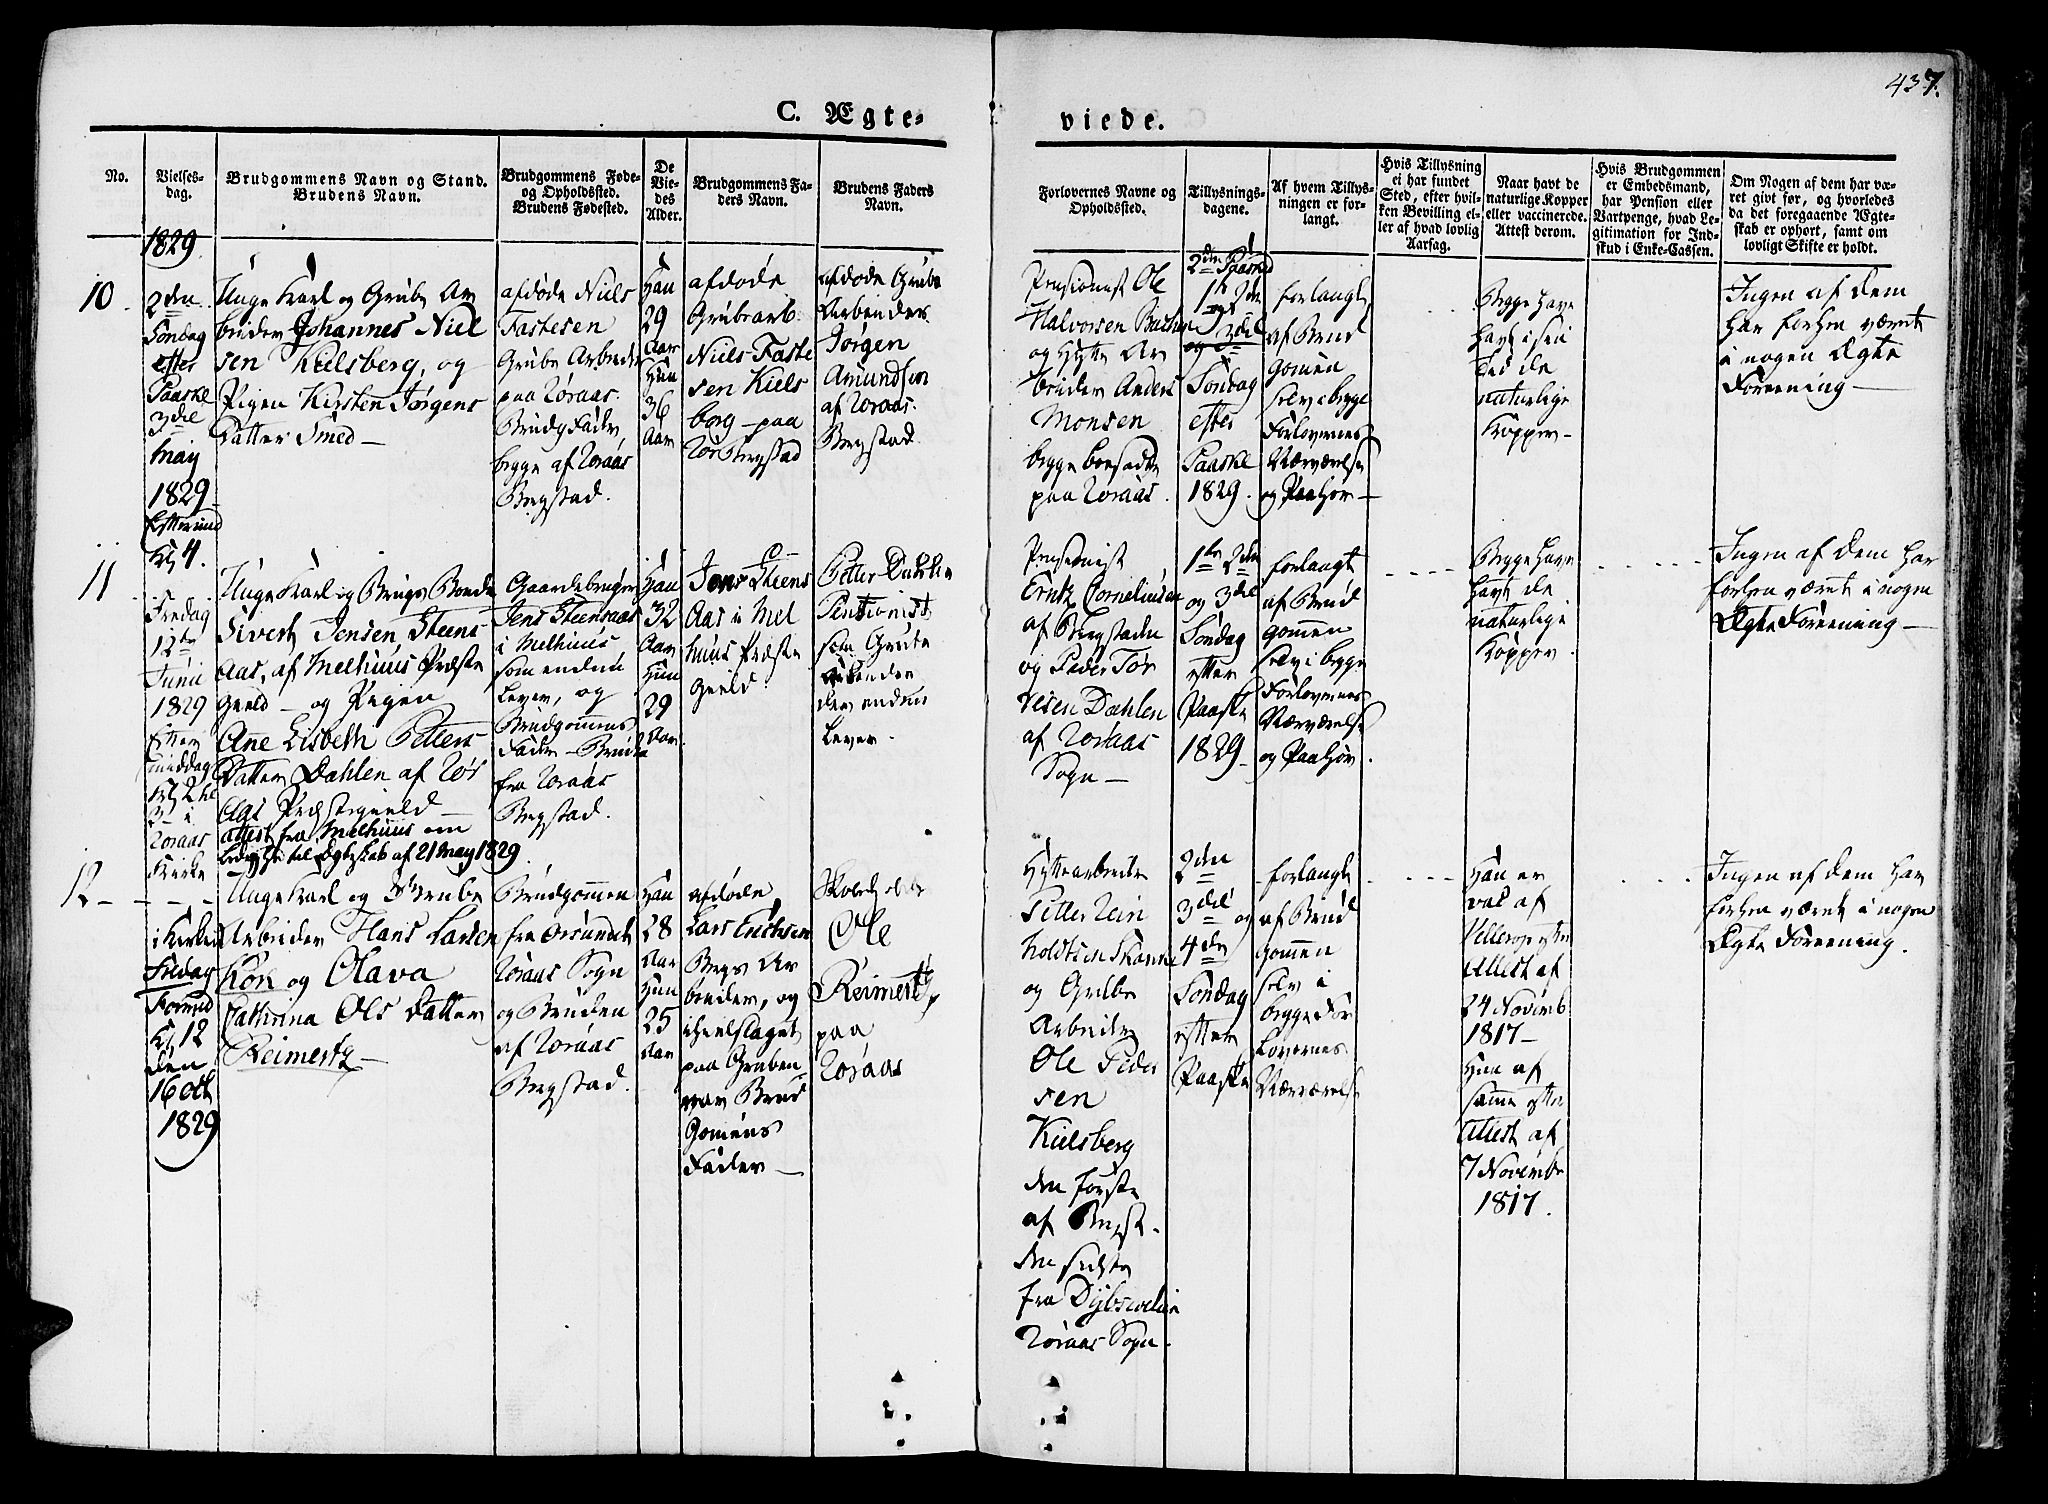 437.
C. Ægte-
viede.
No.
Vielses-
dag.
Brudgommens Navn og Stand.
Brudens Navn.
Brudgommens Føde-
og Opholdssted.
Brudens Fødested.
De
Vie-
des
Alder.
Brudgommens Fa-
ders Navn.
Brudens Faders
Navn.
Forlovernes Navne og
Opholdssted.
Tillysnings-
dagene.
Af hvem Tillys-
ningen er for-
langt.
Hvis Tillysning
ei har fundet
Sted, efter hvil-
ken Bevilling el-
ler af hvad lovlig
Aarsag.
Naar havt de
naturlige Kopper
eller vaccinerede.
Attest derom.
Hvis Brudgommen
er Embedsmand,
har Pension eller
Vartpenge, hvad Le-
gitimation for Ind-
skud i Enke-Cassen.
Om Nogen af dem har væ-
ret givt før, og hvorledes
da det foregaaende Ægte-
skab er ophørt, samt om
lovligt Skifte er holdt.
1829.
10.
2den
Søndag
efter
Paaske
3die
May
1829
Kl 4.
Unge Karl og Grube Ar
beider Johannes Niel
sen Kielsberg, og
Pigen Kirsten Jørgens
Datter Smed —
afdøde Niels
Fastesen
Grube Arbeider
paa Røraas.
Brudg Fader
begge af Røraas
Bergstad.
Han
29
Aar
Hun
36
Aar
afdøde
Grubearb.
Niels Faste
sen Kiels
berg — paa
Rør Bergstad
afdøde Grube
Arbeider
Jørgen
Amundsen
af Røraas
Bergstad.
Pensionist Ole
Halvorsen
og Hytte Ar
beider Anders
Monsen
begge boesadde
paa Røraas.
2den Paaskd
1ste 2den
og 3die
Søndag
efter
Paaske
1829.
forlangt
af Brud
gomen
selv i begge
Forlovernes
Nærværelse
og Paahør —
Begge have
havt i sin
Tid de
naturlige
Kopper —
Ingen af dem
har forhen været
i nogen Ægte
Foreening —
11
Fredag
12te
Junii
1829
Efter
middag
Kl 2 til
3 i
Røraas
Kirke
Unge Karl og Brugs Bonde
Sivert Jensen Steens
Aas, af Melhuus Præste
Gield — og Pigen
Ane Lisbeth Petters
Datter Dahlen af Rør
Aas Præstegield —
attest fra Melhuus om
Ledighe til Ægteskab af 21 May 1829.
Gaardebruger
Jens Steensaas
i Melhuus
som endnu
Lever, og
Brudgommens
Fader — Bruden
fra Røraas
Bergstad.
Han
32
Aar
Hun
29
Aar.
Jens Steens
Aas i Mel
huus Præste
Gield.
Petter Dahlen
Pentionist
som Grube
Arbeider
der endnu
Lever.
Pensionist
Erntz Cornelius
af Bergstaden
og Peder Tør
resen Dahlen
af Røraas
Sogn —
1ste 2den
og 3die
Søndag
efter
Paaske
1829 —
forlangt
af Brud
gommen
selv i begge
Forlovernes
Nærværelse
og Paahør.
Begge have
havt de
naturlige
Kopper.
Ingen af dem har
forhen været i nogen
Ægte Foreening —
12
i Kirken
Fredag
Formid
Kl 12
den
16 Oct
1829
Unge Karl og Grube
Arbeider Hans Larsen
Kør og Olava
Cathrina Ols Datter
Reimertz —
Brudgommen
fra Ørsundet
Røraas Sogn
og Bruden
af Røraas
Bergstad.
Han
28
Aar
Hun
25
Aar
afdøde
Lars Erichsen
Bergs Ar
beider, og
ihielslaget
paa Gruben
var Brud
Gomens
Fader —
Ole
Reimertz
paa
Røraas
Hyttearbeider
Petter Rein
holdtsen
og Grube
Arbeider
Ole Peder
sen
Kielsberg
den første
af Bergst.
den sidste
fra
Røraas Sogn.
2den
3die og
4de
Søndag
efter
Paaske
forlangt
af Brud
gommen
selv i
begge For
Lovernes
Nærværelse
Han er
vac af
efter
Attest af
24 Novemb
1817 —
Hun af
samme efter
Attest af
7 Novembr
1817.
Ingen af dem har
forhen været i nogen
Ægte Foreening.